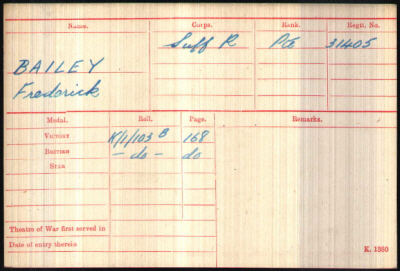 Name. Corps. Rank. Regtl. No.
Suff R Pte 31405
BAILEY
Frederick
Medal. Roll. Page. Remarks.
VICTORY K/1/103 B 168
BRITISH – do – do
STAR
Theatre of War first served in
Date of entry therein
K. 1380